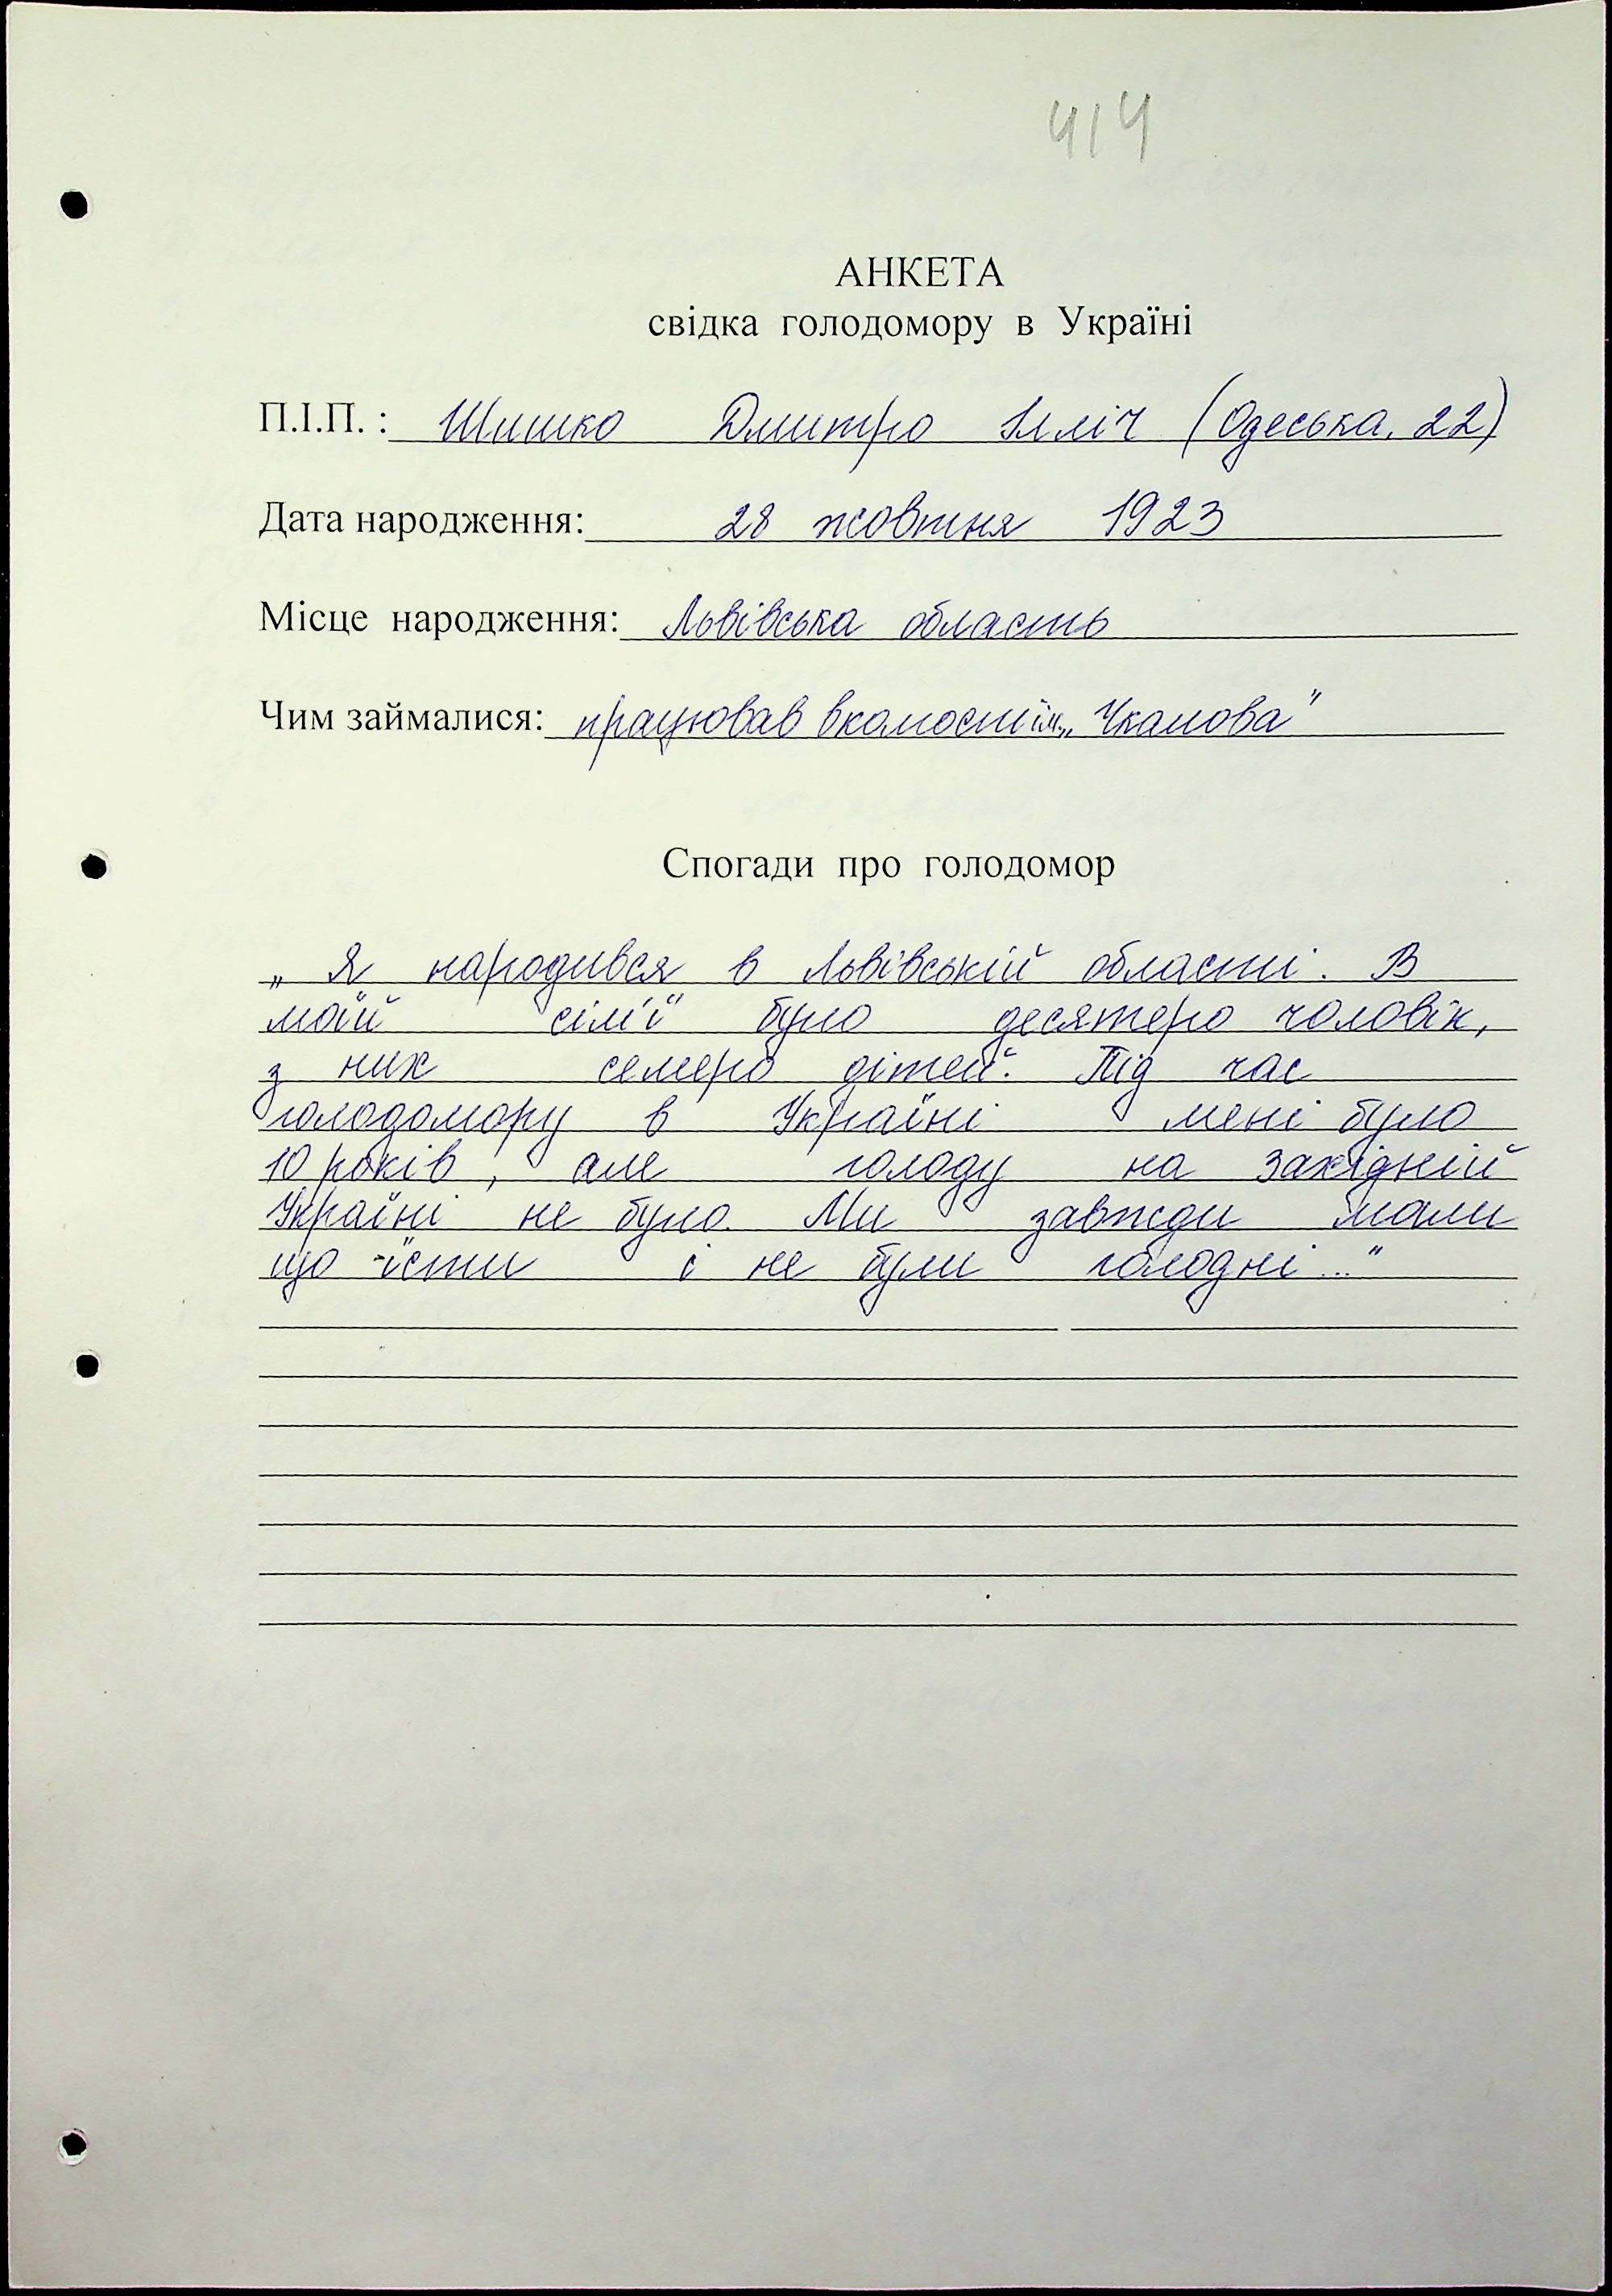 414
АНКЕТА
свідка голодомору в Україні
П.І.П. : Шишко Дмитро Ілліч (Одеська, 22)
Дата народження: 28 жовтня 1923
Місце народження: Львівська область
Чим займалися: працював в ім. „Чкалова"
Спогади про голодомор
„Я народився в Львівській області. В
моїй сім'ї було десятеро чоловік,
з них семеро дітей. Під час
голодомору в Україні мені було
10 років, але голоду на Західній
Україні не було. Ми завжди мали
що їсти і не були голодні..."